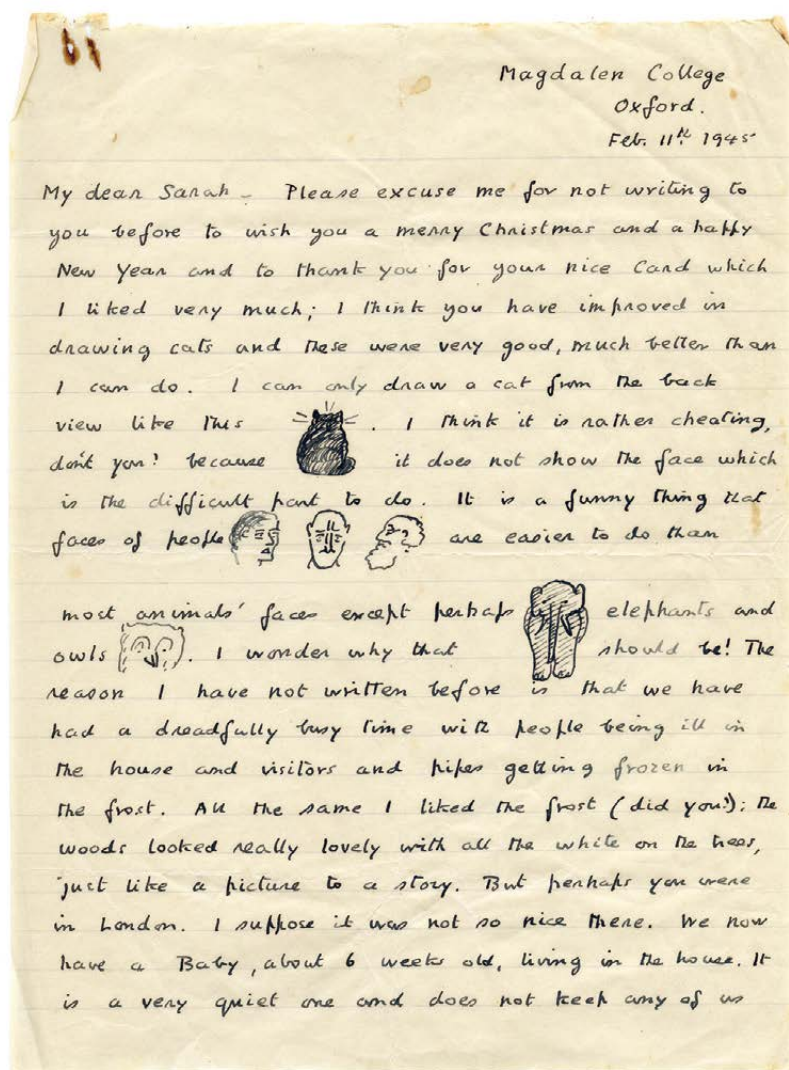 Magdalen College
Oxford.
Feb. 11th 1945
My dear Sarah – Please excuse me for not writing to
you before to wish you a merry Christmas and a happy
New Year and to thank you for your nice card which
I liked very much; I think you have improved in
drawing cats and these were very good, much better than
I can do. I can only draw a cat from the back
view like this . I think it is rather cheating,
don't you? because it does not show the face which
is the difficult part to do. It is a funny thing that
faces of people are easier to do than
most animals' faces except perhaps elephants and
owls . I wonder why that should be! The
reason I have not written before is that we have
had a dreadfully busy time with people being ill in
the house and visitors and pipes getting frozen in
the frost. All the same I liked the frost (did you?): the
woods looked really lovely with all the white on the trees,
just like a picture to a story. But perhaps you were
in London. I suppose it was not so nice there. We now
have a Baby, about 6 weeks old, living in the house. It
is a very quiet one and does not keep any of us